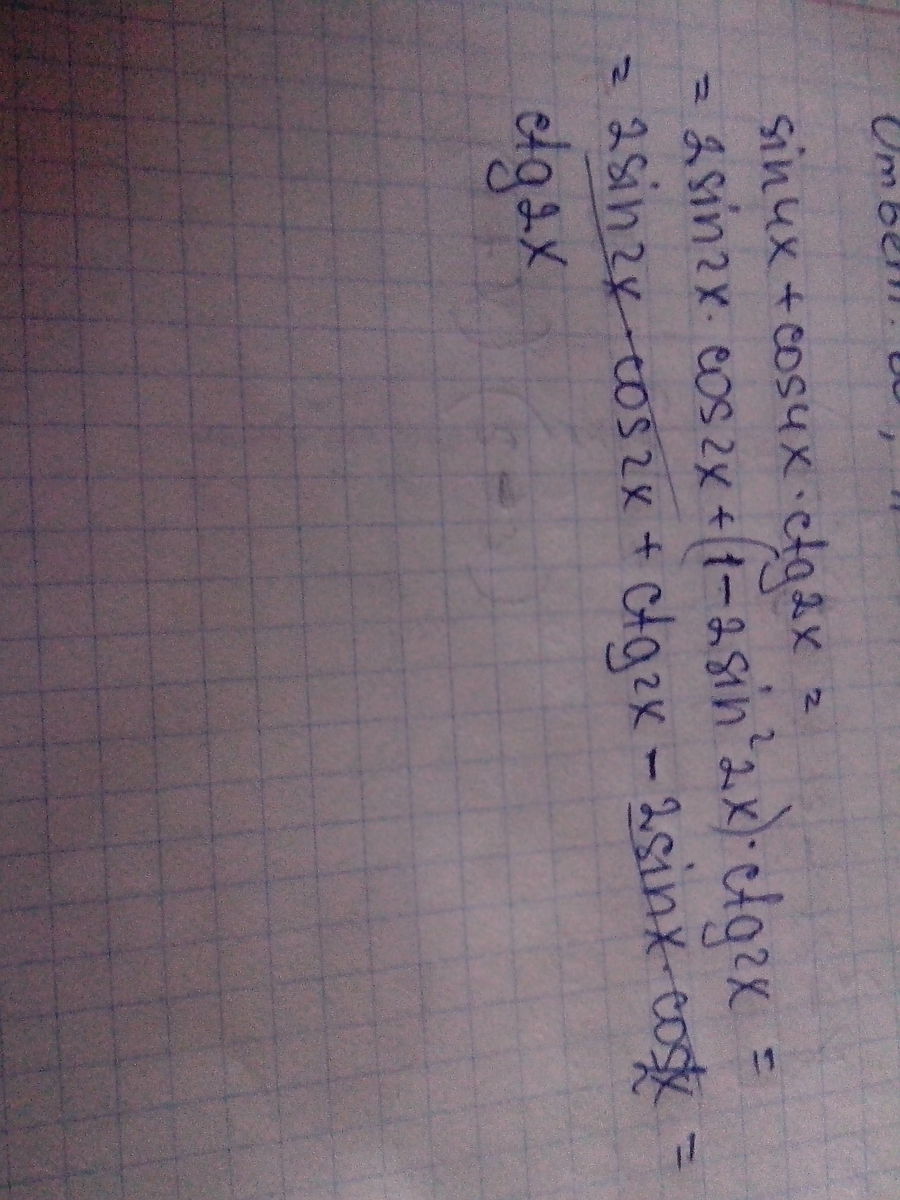 Ответ:
sin4x + cos4x · ctg2x =
= 2sin2x · cos2x + (1 - 2sin² 2x) · ctg2x =
= 2sin2x · cos2x + ctg2x - 2sinx · cos2x =
ctg2x